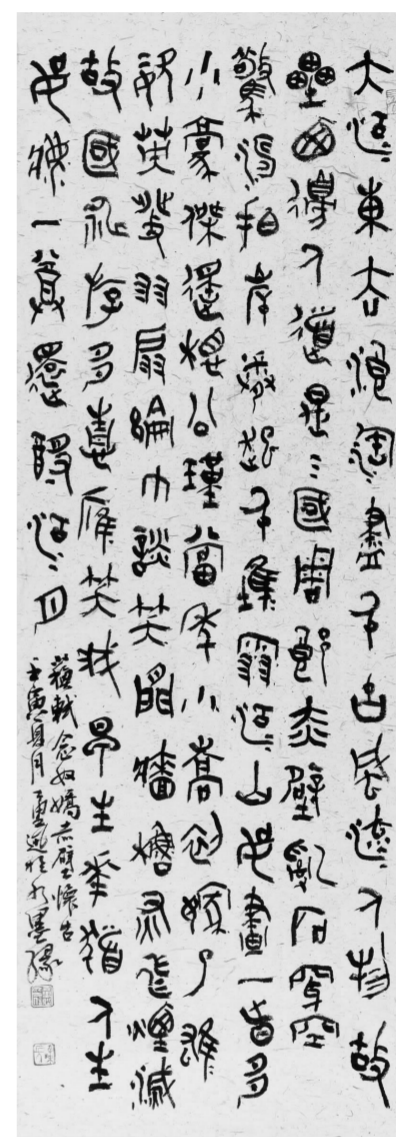 大江東去浪淘盡千古風流人物故
壘西邊人道是三國周郎赤壁亂石穿空
驚濤拍岸捲起千堆雪江山如畫一時多
少豪傑遙想公瑾當年小喬初嫁了雄
姿英發羽扇綸巾談笑間檣櫓灰飛煙滅
故國神遊多情應笑我早生華髮人生
如夢一尊還酹江月
蘇軾念奴嬌赤壁懷古
壬寅夏月